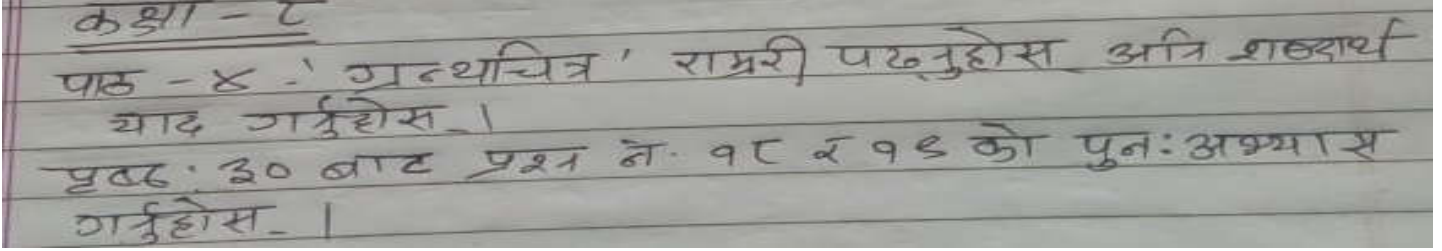 कक्षा - ८
पाठ - ४ - ' ग्रन्थचित्र ' राम्ररी पढ्नुहोस् अनि शब्दार्थ
याद गर्नुहोस् ।
पृष्ठ : ३० बाट प्रश्न नं. १८ र १९ को पुनः अभ्यास
गर्नुहोस् ।